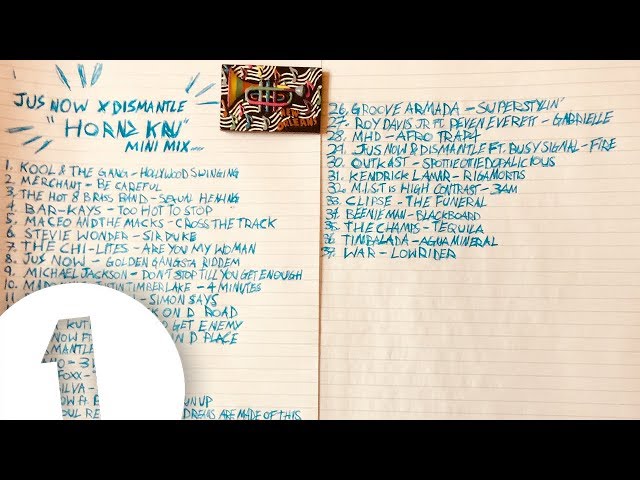 JUS NOW X DISMANTLE
"HORNZ KRU"
MINI MIX
NEW ORLEANS
1. KOOL & THE GANG - HOLLYWOOD SWINGING
2. MERCHANT - BE CAREFUL
3. THE HOT 8 BRASS BAND - SEXUAL HEALING
4. BAR-KAYS - TOO HOT TO STOP
5. MACEO AND THE MACKS - CROSS THE TRACK
6. STEVIE WONDER - SIR DUKE
7. THE CHI-LITES - ARE YOU MY WOMAN
8. JUS NOW - GOLDEN GANGSTA RIDDEM
9. MICHAEL JACKSON - DON'T STOP TILL YOU GET ENOUGH
10. TIMBERLAKE - 4 MINUTES
- SIMON SAYS
K ON D ROAD
KUT GET ENEMY
NOW FT N D PLACE
ISMANTLE
- 3
FOXX -
SILVA -
OW FT UN UP
OUL RE DREAMS ARE MADE OF THIS
1
26. GROOVE ARMADA - SUPERSTYLIN'
27. ROY DAVIS JR FT. PEVEN EVERETT - GABRIELLE
28. MHD - AFRO TRAP 7
29. JUS NOW & DISMANTLE FT. BUSY SIGNAL - FIRE
30. OUTKAST - SPOTTIEOTTIEDOPALICIOUS
31. KENDRICK LAMAR - RIGAMORTIS
32. M.I.S.T IS HIGH CONTRAST - 3AM
33. CLIPSE - THE FUNERAL
34. BEENIE MAN - BLACKBOARD
35. THE CHAMPS - TEQUILA
36. TIMBALADA - AGUA MINERAL
37. WAR - LOWRIDER